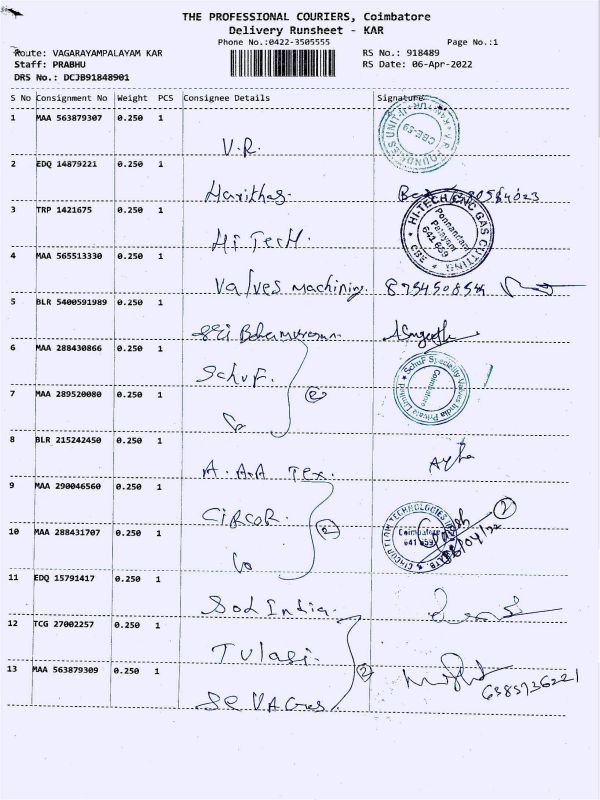 THE PROFESSIONAL COURIERS, Coimbatore
Delivery Runsheet - KAR
Phone No.:0422-3505555 Page No.:1
Route: VAGARAYAMPALAYAM KAR RS No.: 918489
Staff: PRABHU RS Date: 06-Apr-2022
DRS No.: DCJB91848901
S No Consignment No Weight PCS Consignee Details Signature
1 MAA 563879307 0.250 1
V.R.
2 EDQ 14879221 0.250 1
Harithas.
3 TRP 1421675 0.250 1
Hi Tech. HI-TECH CNC GAS CUTTING Ponnandam Palayam 641 659 CBE
4 MAA 565513330 0.250 1
Valves Machining.
5 BLR 5400591989 0.250 1
6 MAA 288430866 0.250 1
Schuf. Schuf Speciality Valves India Private Limited Coimbatore
7 MAA 289520080 0.250 1
8 BLR 215242450 0.250 1
A.A.A Tex.
9 MAA 290046560 0.250 1
Circor. Coimbatore 641 659 2
10 MAA 288431707 0.250 1
11 EDQ 15791417 0.250 1
Sod India.
12 TCG 27002257 0.250 1
Tulasi. 2
13 MAA 563879309 0.250 1
6385736221